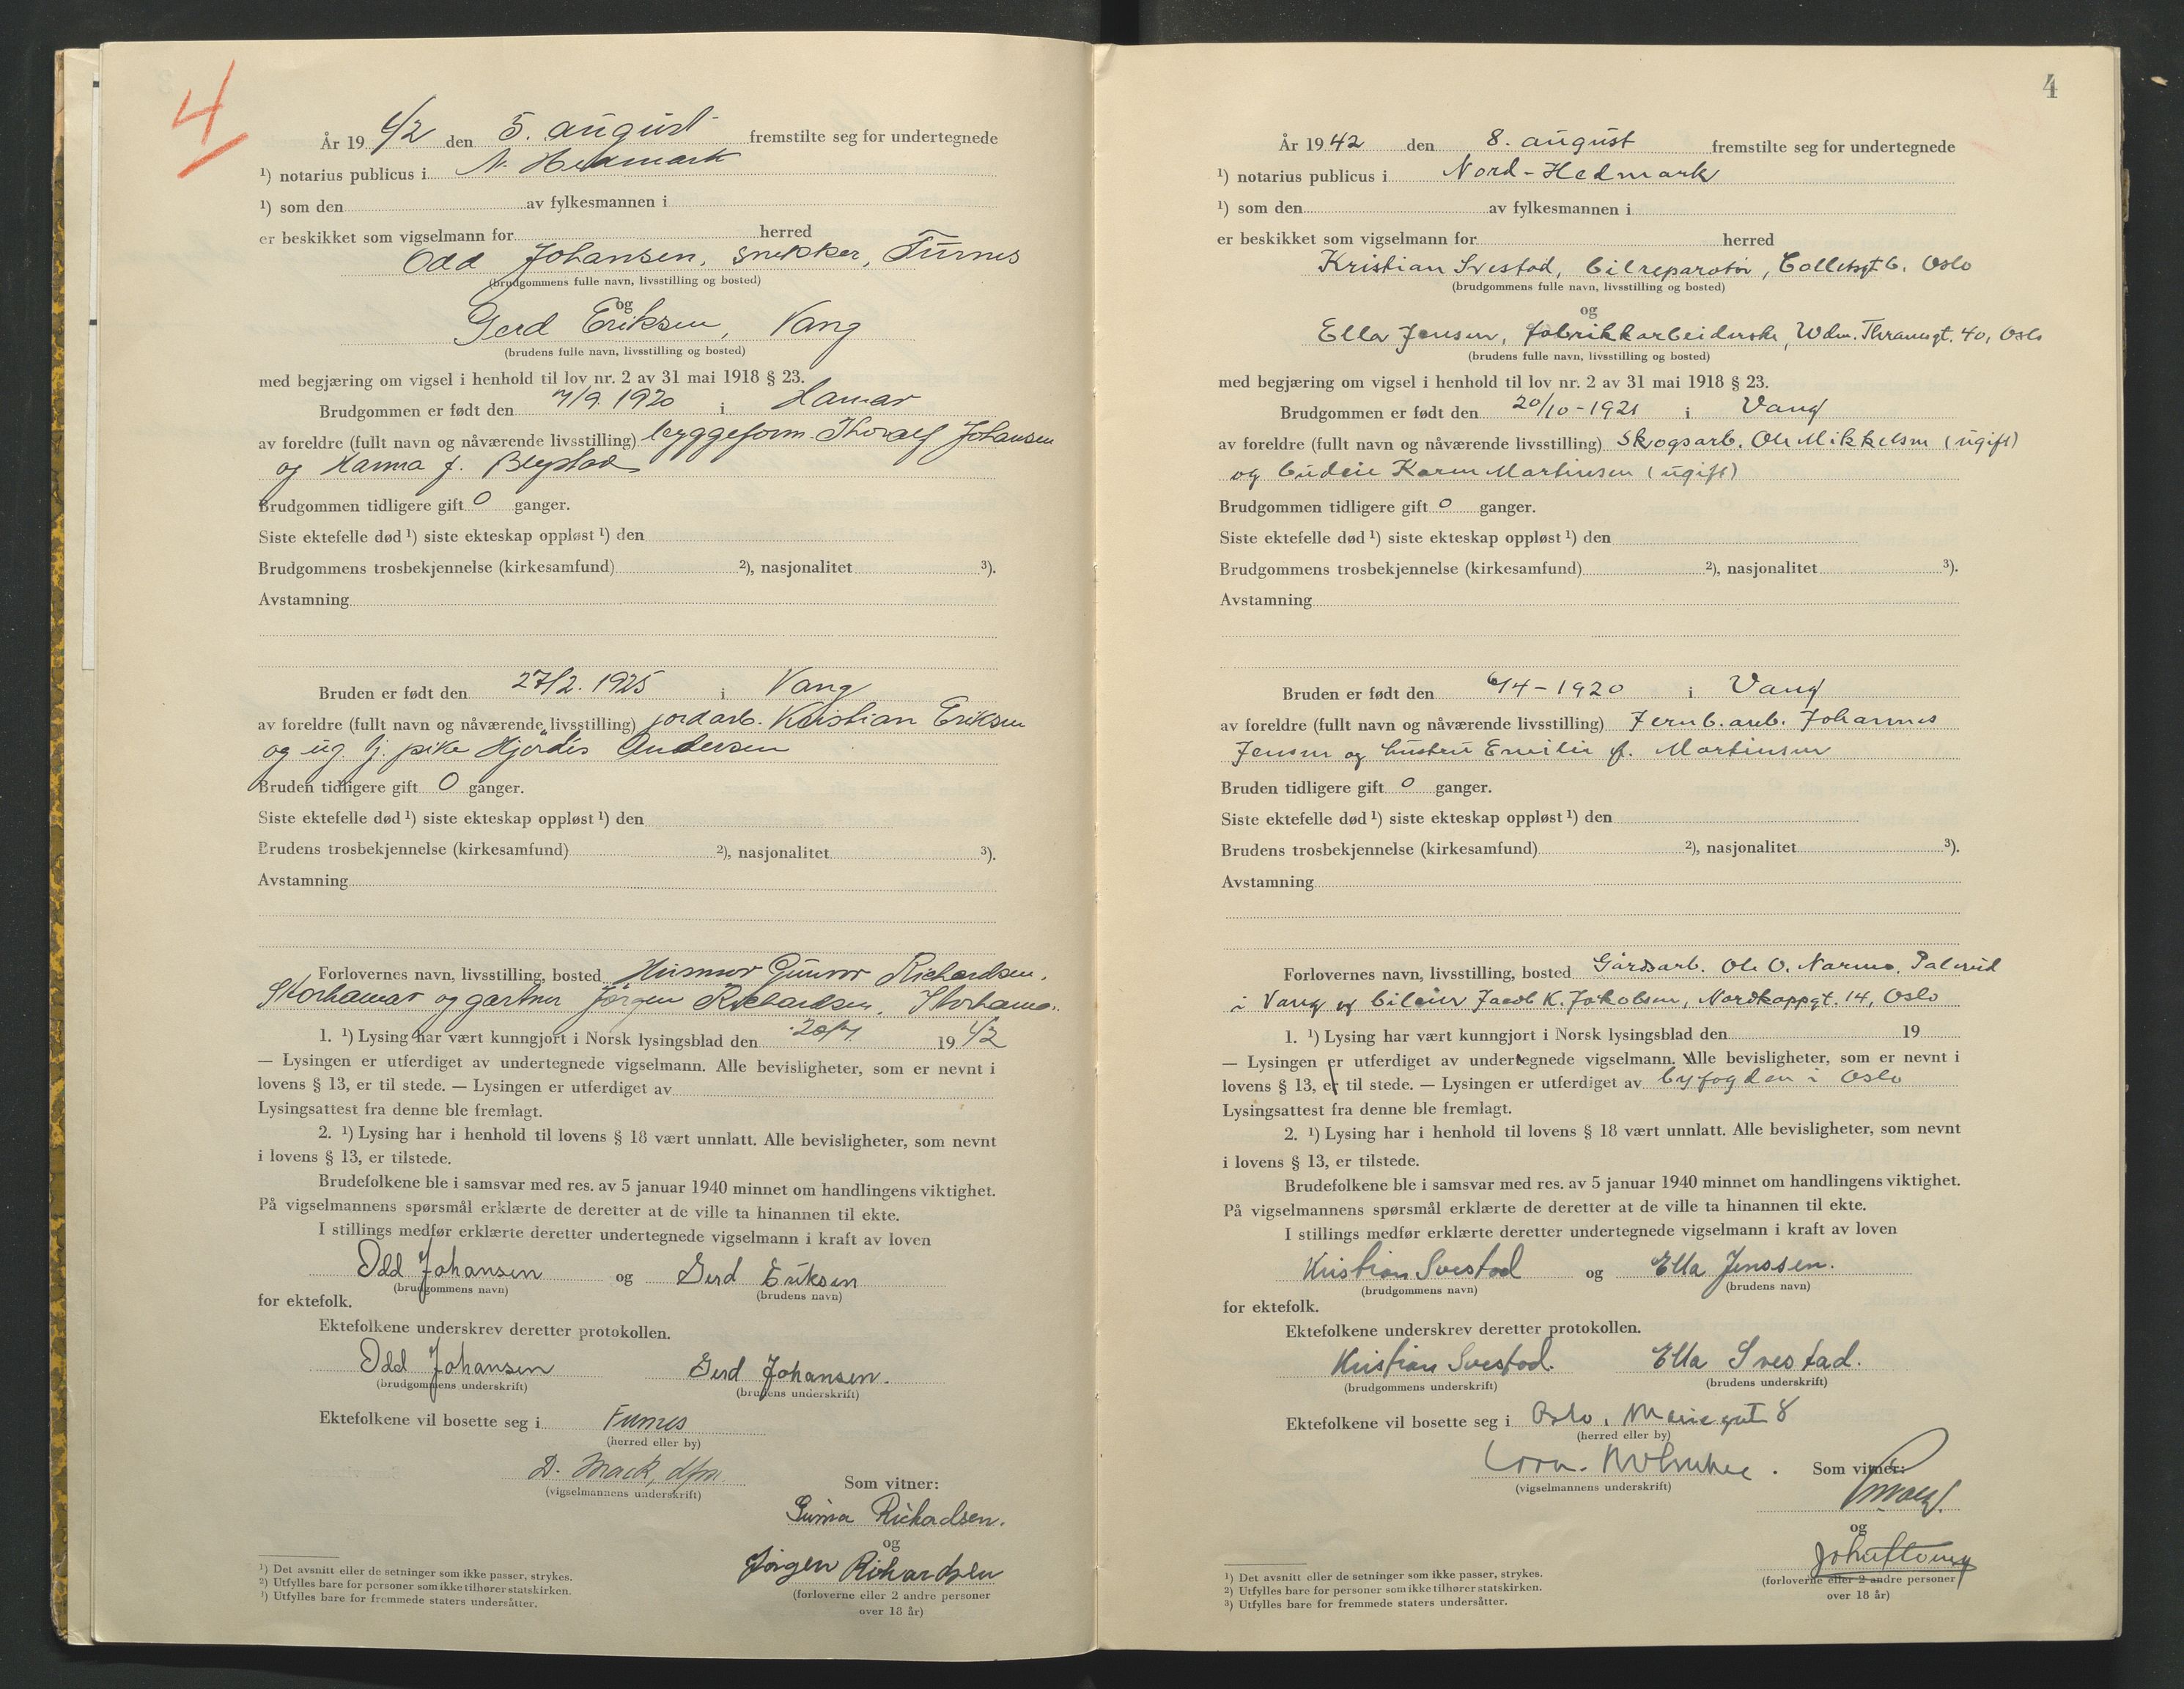 4
År 1942 den 5. august fremstilte seg for undertegnede
¹) notarius publicus i N. Hedmark
¹) som den av fylkesmannen i
er beskikket som vigselmann for herred
Odd Johansen, snekker, Furnes
(brudgommens fulle navn, livsstilling og bosted)
og
Gerd Eriksen, Vang
(brudens fulle navn, livsstilling og bosted)
med begjæring om vigsel i henhold til lov nr. 2 av 31 mai 1918 § 23.
Brudgommen er født den 7/9. 1920 i Hamar
av foreldre (fullt navn og nåværende livsstilling) byggeform. Thoralf Johansen
og Hanna f. Blystad
Brudgommen tidligere gift 0 ganger.
Siste ektefelle død ¹) siste ekteskap oppløst ¹) den
Brudgommens trosbekjennelse (kirkesamfund) ²), nasjonalitet ³).
Avstamning
Bruden er født den 27/2. 1925 i Vang
av foreldre (fullt navn og nåværende livsstilling) jordarb. Kristian Eriksen
og ug. tj. pike Hjørdis Andersen
Bruden tidligere gift 0 ganger.
Siste ektefelle død ¹) siste ekteskap oppløst ¹) den
Brudens trosbekjennelse (kirkesamfund) ²), nasjonalitet ³).
Avstamning
Forlovernes navn, livsstilling, bosted Husmor Gunvor Richardsen,
Storhamar og gartner Jørgen Richardsen, Storhamar.
1. ¹) Lysing har vært kunngjort i Norsk lysingsblad den 20/7. 1942
— Lysingen er utferdiget av undertegnede vigselmann. Alle bevisligheter, som er nevnt i
lovens § 13, er til stede. — Lysingen er utferdiget av
Lysingsattest fra denne ble fremlagt.
2. ¹) Lysing har i henhold til lovens § 18 vært unnlatt. Alle bevisligheter, som nevnt
i lovens § 13, er tilstede.
Brudefolkene ble i samsvar med res. av 5 januar 1940 minnet om handlingens viktighet.
På vigselmannens spørsmål erklærte de deretter at de ville ta hinannen til ekte.
I stillings medfør erklærte deretter undertegnede vigselmann i kraft av loven
Odd Johansen og Gerd Eriksen
(brudgommens navn) (brudens navn)
for ektefolk.
Ektefolkene underskrev deretter protokollen.
Odd Johansen Gerd Johansen.
(brudgommens underskrift) (brudens underskrift)
Ektefolkene vil bosette seg i Furnes
(herred eller by)
D. Mack, dfm.
(vigselmannens underskrift)
Som vitner:
Richardsen.
og
Jørgen Richardsen
(forloverne eller 2 andre personer
over 18 år)
¹) Det avsnitt eller de setninger som ikke passer, strykes.
²) Utfylles bare for personer som ikke tilhører statskirken.
³) Utfylles bare for fremmede staters undersåtter.
4
År 1942 den 8. august fremstilte seg for undertegnede
¹) notarius publicus i Nord-Hedmark
¹) som den av fylkesmannen i
er beskikket som vigselmann for herred
Kristian Svestad, bilreparatør, Colletsgt 6. Oslo
(brudgommens fulle navn, livsstilling og bosted)
og
Ella Jensen, fabrikkarbeiderske, Wdm. Thranesgt. 40, Oslo
(brudens fulle navn, livsstilling og bosted)
med begjæring om vigsel i henhold til lov nr. 2 av 31 mai 1918 § 23.
Brudgommen er født den 20/10-1921 i Vang
av foreldre (fullt navn og nåværende livsstilling) Skogsarb. Ole Mikkelsen (ugift)
og budeie Karen Martinsen (ugift)
Brudgommen tidligere gift 0 ganger.
Siste ektefelle død ¹) siste ekteskap oppløst ¹) den
Brudgommens trosbekjennelse (kirkesamfund) ²), nasjonalitet ³).
Avstamning
Bruden er født den 6/4-1920 i Vang
av foreldre (fullt navn og nåværende livsstilling) Jernb. arb. Johannes
Jensen og hustru Emilie f. Martinsen
Bruden tidligere gift 0 ganger.
Siste ektefelle død ¹) siste ekteskap oppløst ¹) den
Brudens trosbekjennelse (kirkesamfund) ²), nasjonalitet ³).
Avstamning
Forlovernes navn, livsstilling, bosted Gårdsarb. Ole O. Narmo,
i Vang og bileier Jacob K. Jakobsen, Nordkappgt. 14, Oslo
1. ¹) Lysing har vært kunngjort i Norsk lysingsblad den 19
— Lysingen er utferdiget av undertegnede vigselmann. Alle bevisligheter, som er nevnt i
lovens § 13, er til stede. — Lysingen er utferdiget av byfogden i Oslo
Lysingsattest fra denne ble fremlagt.
2. ¹) Lysing har i henhold til lovens § 18 vært unnlatt. Alle bevisligheter, som nevnt
i lovens § 13, er tilstede.
Brudefolkene ble i samsvar med res. av 5 januar 1940 minnet om handlingens viktighet.
På vigselmannens spørsmål erklærte de deretter at de ville ta hinannen til ekte.
I stillings medfør erklærte deretter undertegnede vigselmann i kraft av loven
Kristian Svestad og Ella Jenssen.
(brudgommens navn) (brudens navn)
for ektefolk.
Ektefolkene underskrev deretter protokollen.
Kristian Svestad. Ella Svestad.
(brudgommens underskrift) (brudens underskrift)
Ektefolkene vil bosette seg i Oslo, 8
(herred eller by)
(vigselmannens underskrift)
Som vitner:
og
(forloverne eller 2 andre personer
over 18 år)
¹) Det avsnitt eller de setninger som ikke passer, strykes.
²) Utfylles bare for personer som ikke tilhører statskirken.
³) Utfylles bare for fremmede staters undersåtter.